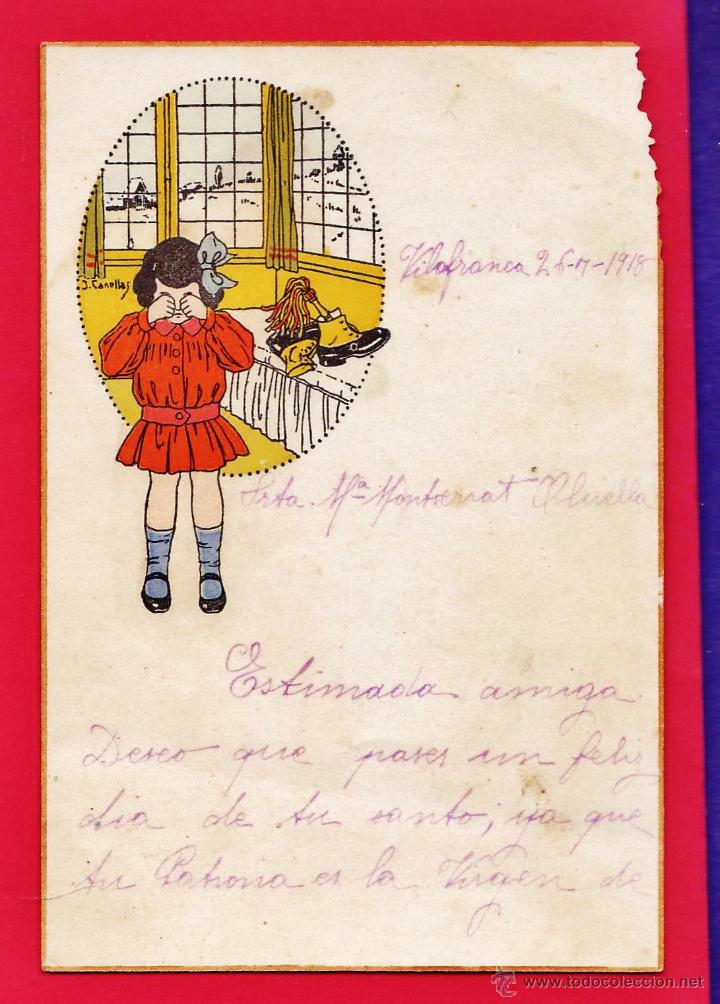 J. Canellas
Vilafranca 26-4-1918
Srta. Mª Montserrat
Estimada amiga
Deseo que pases un feliz
dia de tu santo; ya que
tu Patrona es la Virgen de
© www.todocoleccion.net